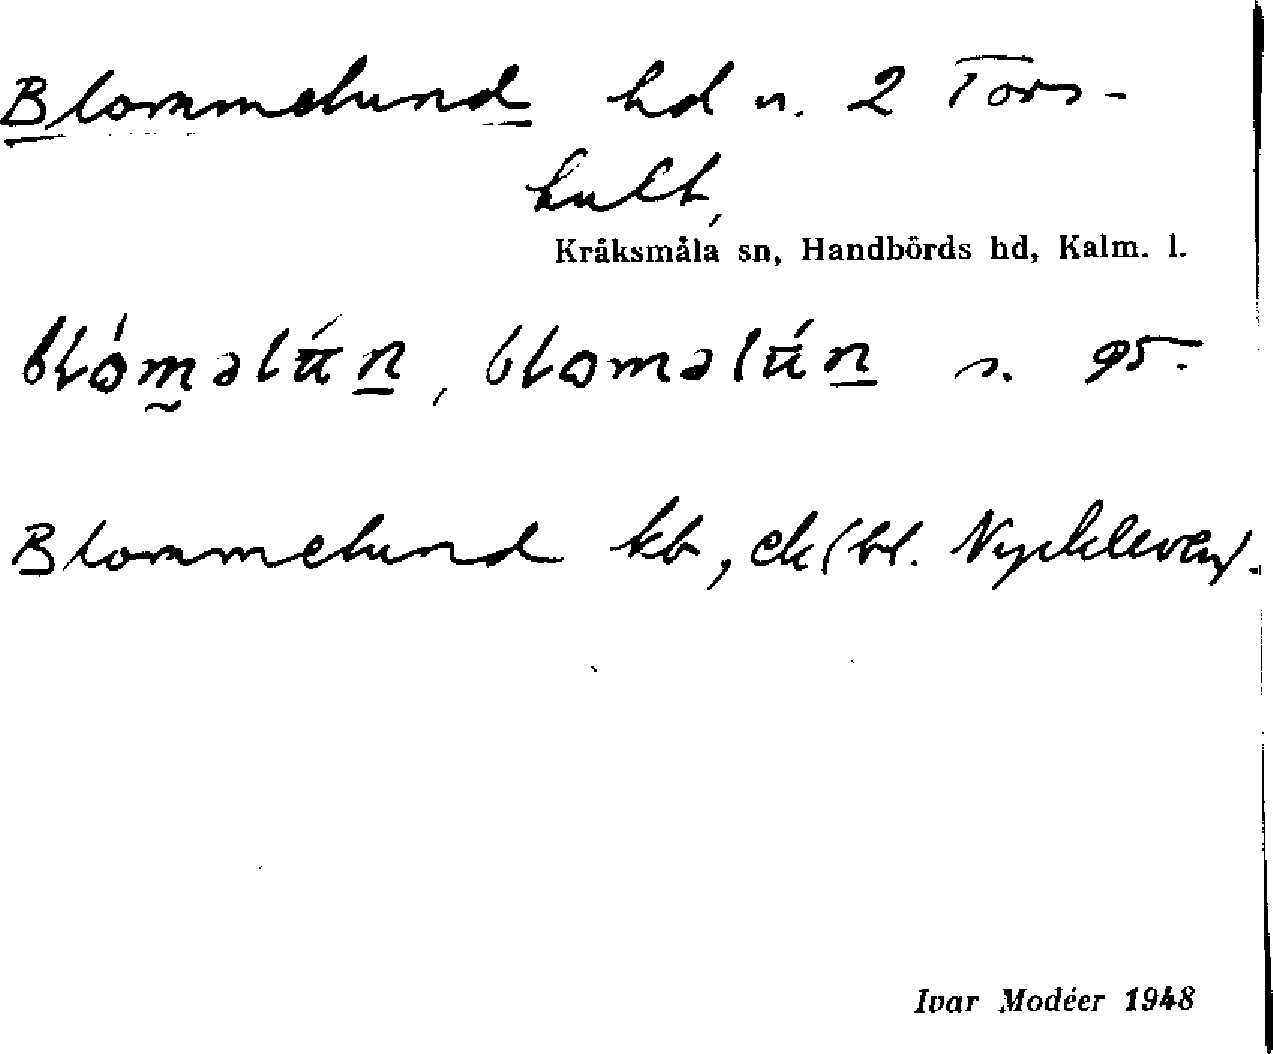 Blommelund hd n. 2 Tors-
hult,
Kråksmåla sn, Handbörds hd, Kalm. l.
blóməlún, bloməlún s. 95.
Blommelund kb, ek (bl.
Ivar Modéer 1948